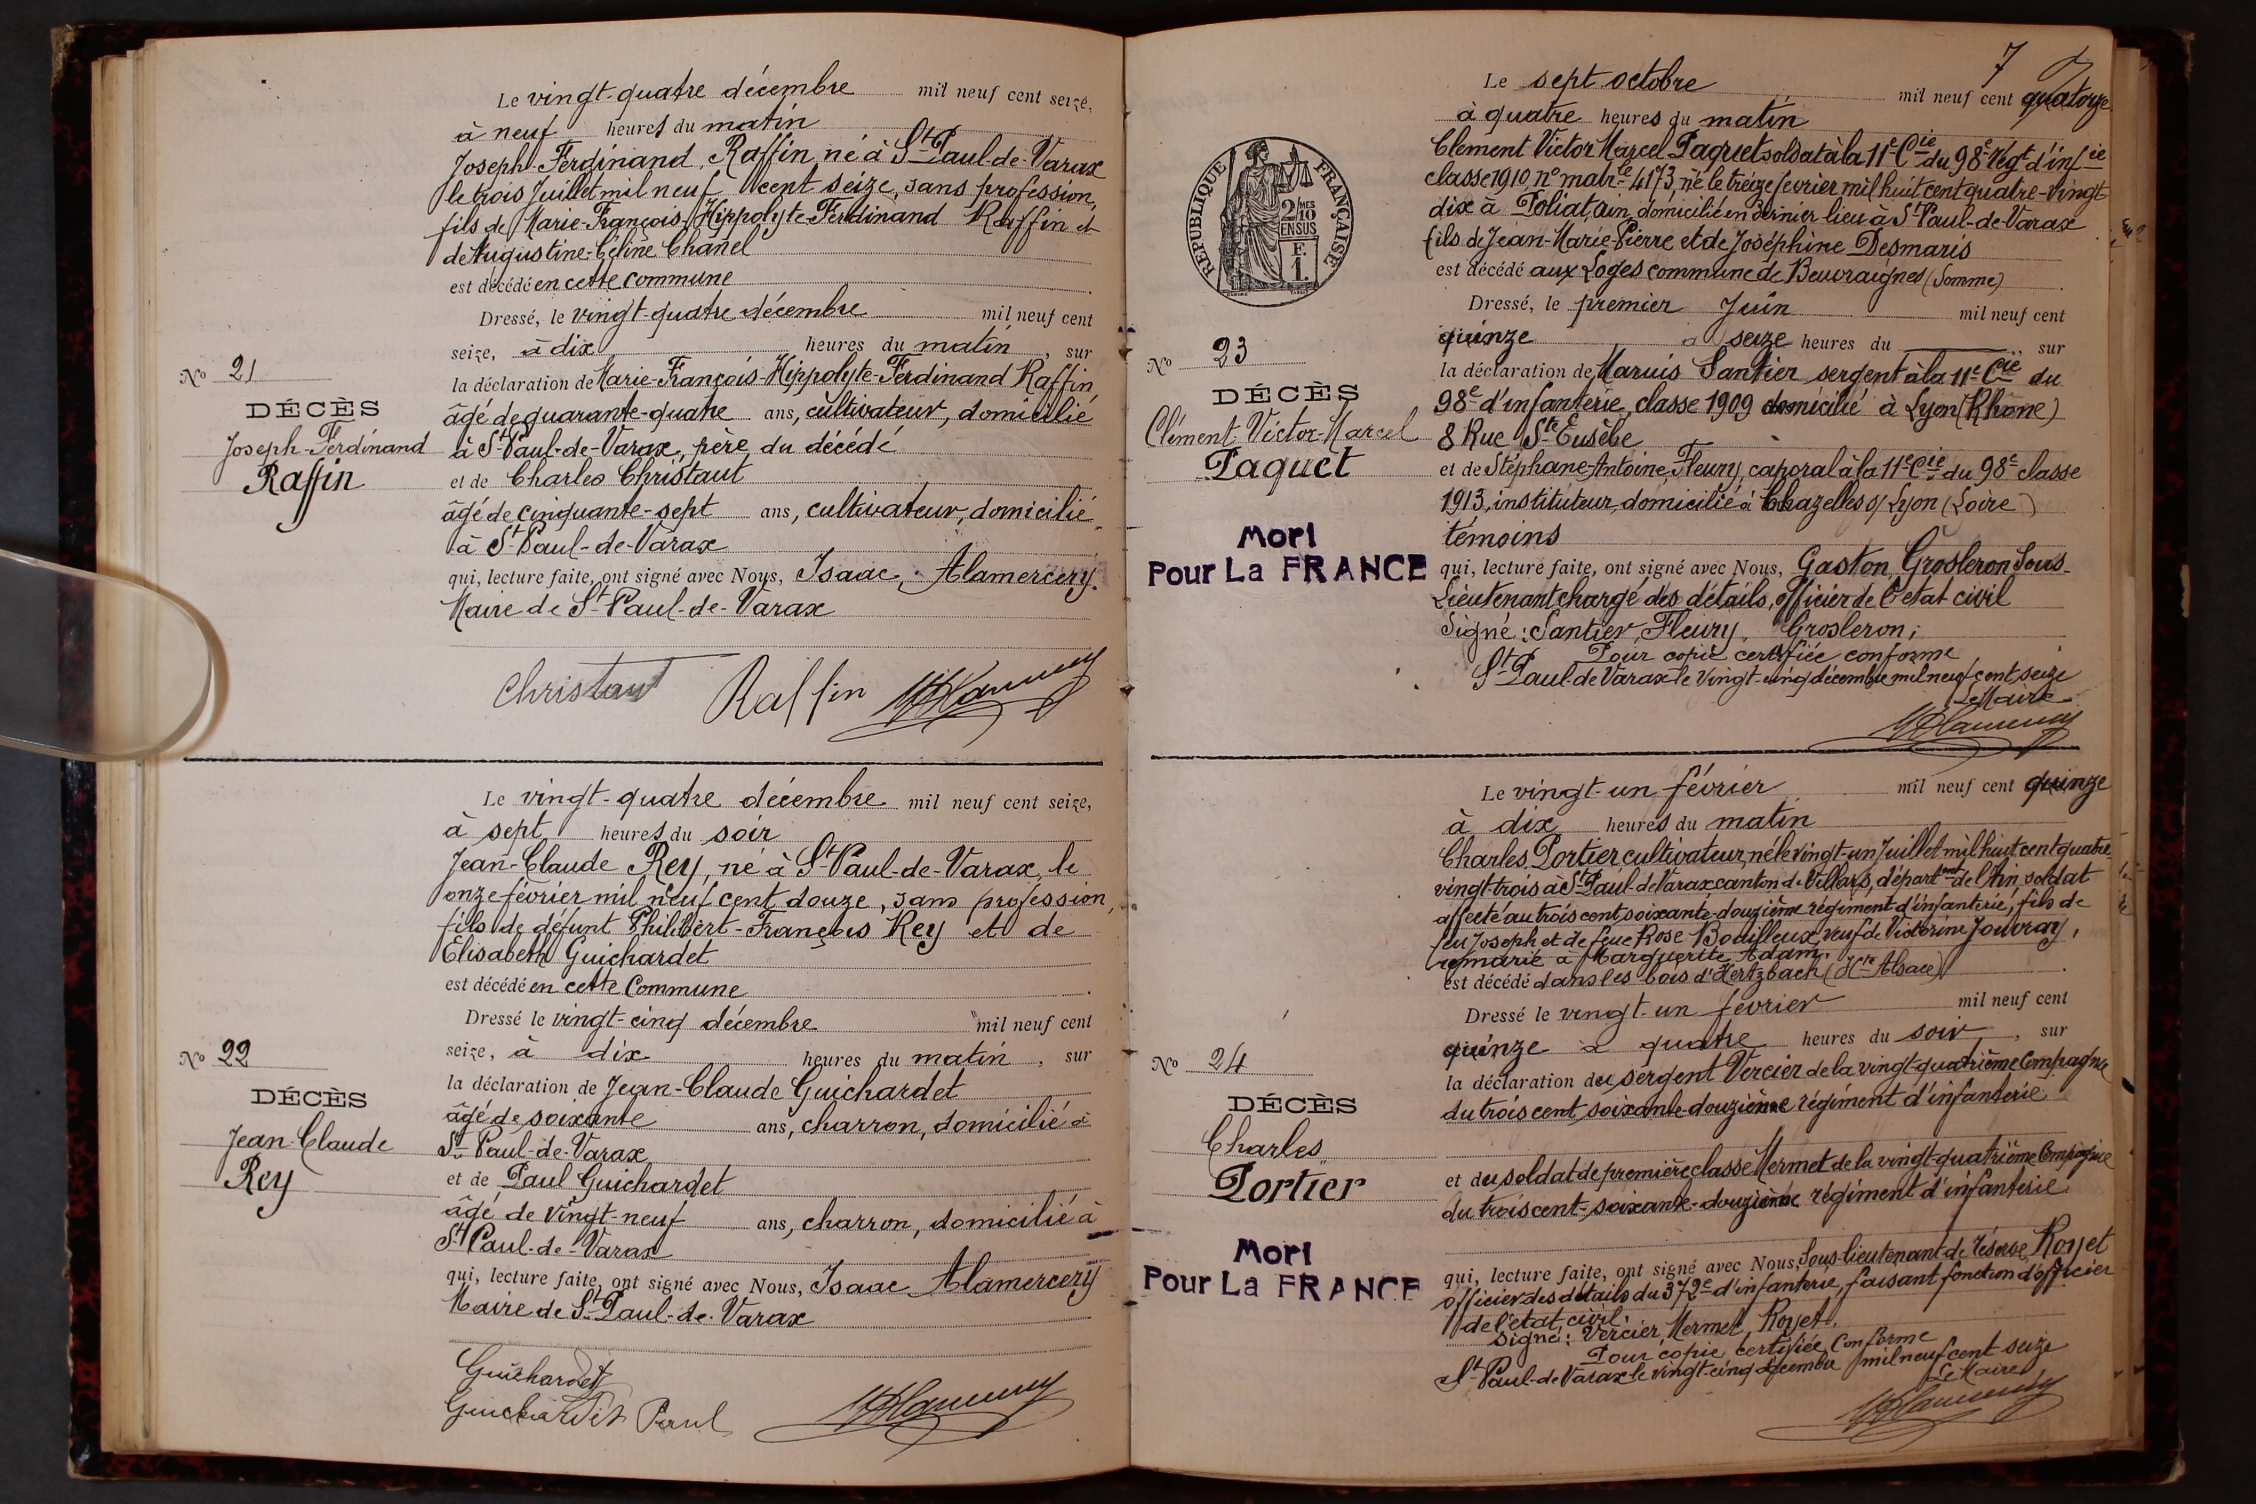 Le vingt-quatre décembre mil neuf cent seize,
à neuf heures du matin
Joseph-Ferdinand Raffin, né à St Paul-de-Varax
le trois Juillet mil neuf cent seize, sans profession,
fils de Marie-François-Hippolyte-Ferdinand Raffin et
de Augustine-Céline Chanel
est décédé en cette commune
Dressé, le vingt-quatre décembre mil neuf cent
seize, à dix heures du matin, sur
la déclaration de Marie-François-Hippolyte-Ferdinand Raffin
âgé de quarante-quatre ans, cultivateur, domicilié
à St Paul-de-Varax, père du décédé
et de Charles Christaut
âgé de cinquante-sept ans, cultivateur, domicilié
à St Paul-de-Varax
qui, lecture faite, ont signé avec Nous, Isaac Alamercery.
Maire de St Paul-de-Varax
Christaut Raffin
No 21
DÉCÈS
Joseph-Ferdinand
Raffin
Le vingt-quatre décembre mil neuf cent seize,
à sept heures du soir
Jean-Claude Rey, né à St Paul-de-Varax, le
onze février mil neuf cent douze, sans profession,
fils de défunt Philibert-François Rey et de
Elisabeth Guichardet
est décédé en cette Commune
Dressé le vingt-cinq décembre mil neuf cent
seize, à dix heures du matin, sur
la déclaration de Jean-Claude Guichardet
âgé de soixante ans, charron, domicilié à
St Paul-de-Varax
et de Paul Guichardet
âgé de vingt-neuf ans, charron, domicilié à
St Paul-de-Varax
qui, lecture faite, ont signé avec Nous, Isaac Alamercery
Maire de St Paul-de-Varax
Guichardet
Guichardet Paul
No 22
DÉCÈS
Jean-Claude
Rey
7
Le sept octobre mil neuf cent quatorze
à quatre heures du matin
Clément Victor Marcel Paquet soldat à la 11e Cie du 98e Regt d'infie
classe 1910, no matrle 4173, né le treize fevrier mil huit cent quatre-vingt
dix à Poliat, Ain, domicilié en dernier lieu à St Paul-de-Varax
fils de Jean-Marie-Pierre et de Joséphine Desmaris
est décédé aux Loges commune de Beuvraignes (Somme)
Dressé, le premier Juin mil neuf cent
quinze à seize heures du sur
la déclaration de Marius Santier sergent à la 11e Cie du
98e d'infanterie, classe 1909 domicilié à Lyon (Rhône)
8 Rue St Eusèbe
et de Stéphane-Antoine Fleury, caporal à la 11e Cie du 98e classe
1913, instituteur, domicilié à Chazelles s/ Lyon (Loire)
témoins
qui, lecture faite, ont signé avec Nous, Gaston Grosleron Sous-
Lieutenant chargé des détails, officier de l'etat civil
Signé: Santier, Fleury, Grosleron;
Pour copie certifiée conforme
St Paul-de-Varax le vingt-cinq décembre mil neuf cent seize
Le Maire
RÉPUBLIQUE FRANÇAISE
2/10 MES
EN SUS
F.
1.
No 23
DÉCÈS
Clément-Victor-Marcel
Paquet
Mort
Pour La FRANCE
Le vingt-un février mil neuf cent quinze
à dix heures du matin
Charles Portier cultivateur, né le vingt-un Juillet mil huit cent quatre-
vingt-trois à St Paul-de-Varax canton de Villars, département de l'Ain, soldat
affecté au trois cent soixante-douzième régiment d'infanterie, fils de
feu Joseph et de feue Rose Bouilleux, veuf de Victorine Jouvray,
remarié à Marguerite Adam,
est décédé dans les bois d'Hertzbach (Hte Alsace)
Dressé le vingt-un février mil neuf cent
quinze à quatre heures du soir, sur
la déclaration du sergent Vercier de la vingt-quatrième Compagnie
du trois cent soixante-douzième régiment d'infanterie
et du soldat de première classe Mermet de la vingt-quatrième Compagnie
du trois cent-soixante-douzième régiment d'infanterie
qui, lecture faite, ont signé avec Nous, Sous-lieutenant de réserve Royet
officier des détails du 372e d'infanterie, faisant fonction d'officier
de l'état civil.
Signé: Vercier, Mermet, Royet.
Pour copie certifiée Conforme
St Paul-de-Varax le vingt-cinq décembre mil neuf cent seize
Le Maire
No 24
DÉCÈS
Charles
Portier
Mort
Pour La FRANCE